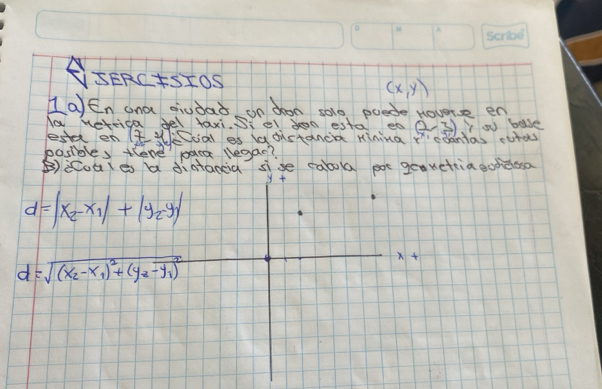 Scribe
EJERCISIOS
(x,y)
1 a) En una ciudad un dron solo puede moverse en
la metrica del taxi. Si el dron esta en y su base
esta en ¿Cual es la distancia minima y cuantas rutas
posibles tiene para llegar?
b) ¿Cual es la distancia si se calcula por geometria
y +
d=|x₂-x₁| + |y₂-y₁|
x +
d=√(x₂-x₁)²+(y₂-y₁)²